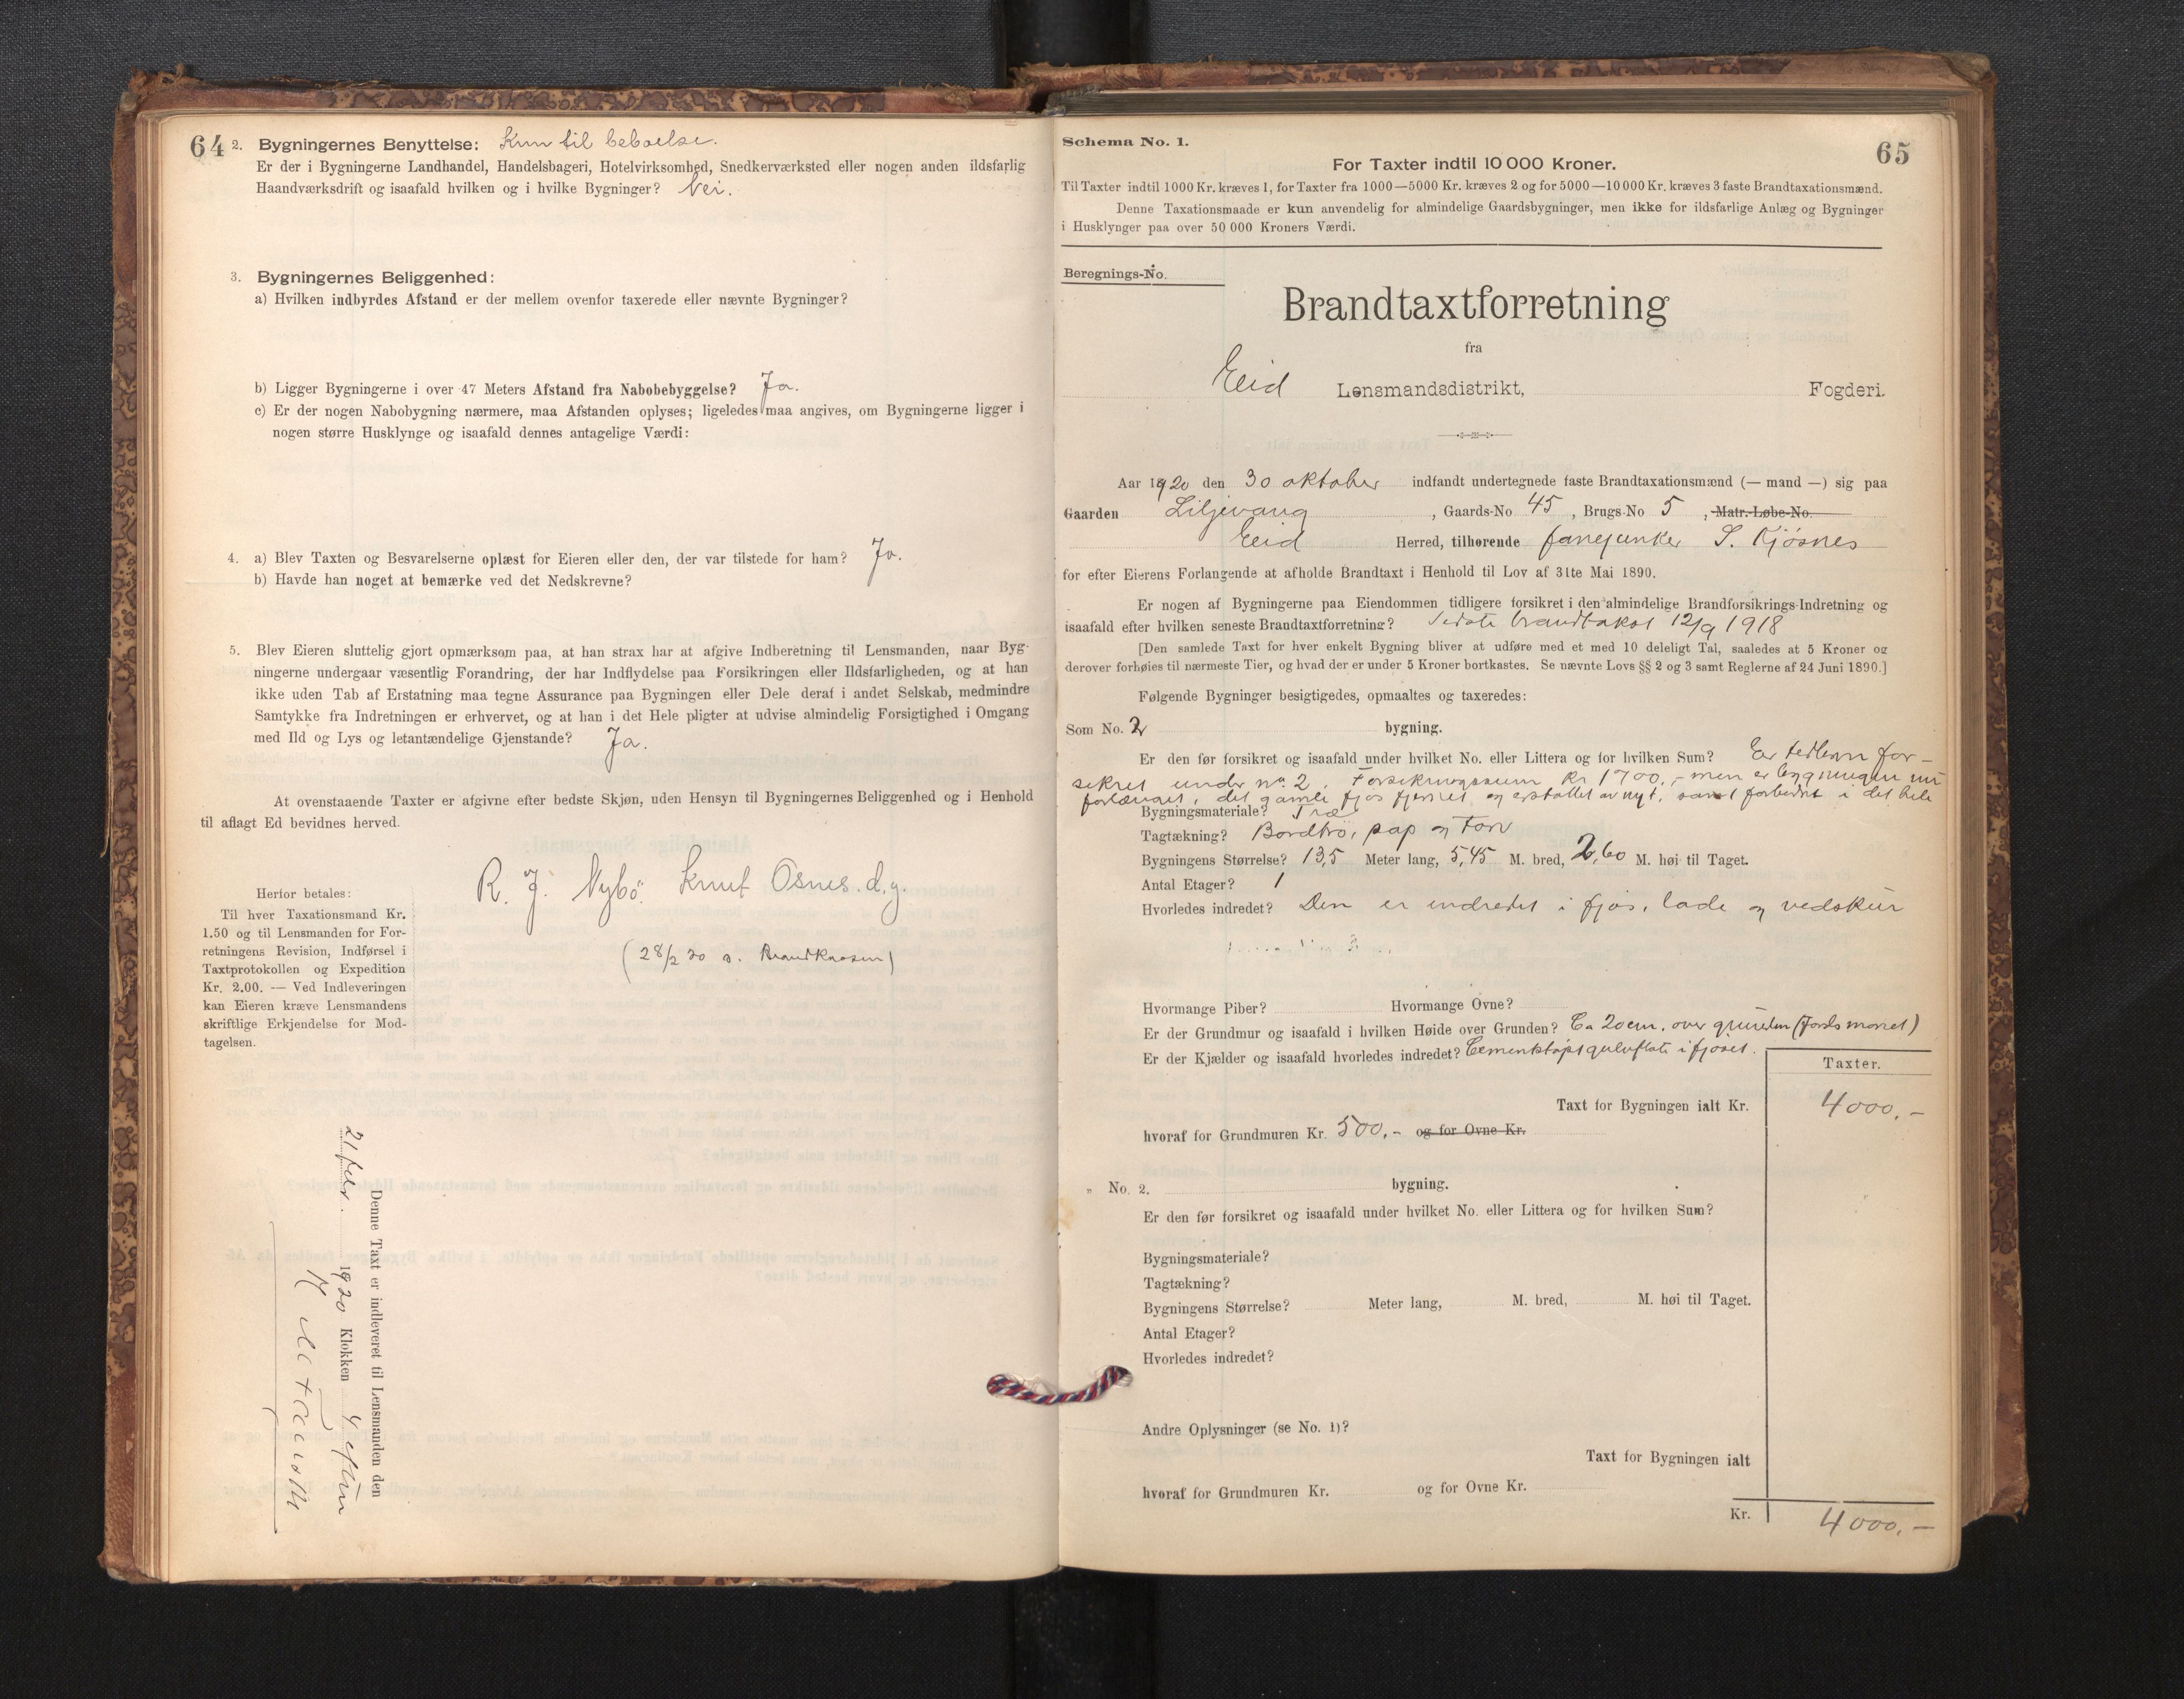 64
2. Bygningernes Benyttelse: Kun til beboelse.
Er der i Bygningerne Landhandel, Handelsbageri, Hotelvirksomhed, Snedkerværksted eller nogen anden ildsfarlig
Haandværksdrift og isaafald hvilken og i hvilke Bygninger? Nei.
3. Bygningernes Beliggenhed:
a) Hvilken indbyrdes Afstand er der mellem ovenfor taxerede eller nævnte Bygninger?
b) Ligger Bygningerne i over 47 Meters Afstand fra Nabobebyggelse? Ja.
c) Er der nogen Nabobygning nærmere, maa Afstanden oplyses; ligeledes maa angives, om Bygningerne ligger i
nogen større Husklynge og isaafald dennes antagelige Værdi:
4. a) Blev Taxten og Besvarelserne oplæst for Eieren eller den, der var tilstede for ham? Ja.
b) Havde han noget at bemærke ved det Nedskrevne?
5. Blev Eieren sluttelig gjort opmærksom paa, at han strax har at afgive Indberetning til Lensmanden, naar Byg-
ningerne undergaar væsentlig Forandring, der har Indflydelse paa Forsikringen eller Ildsfarligheden, og at han
ikke uden Tab af Erstatning maa tegne Assurance paa Bygningen eller Dele deraf i andet Selskab, medmindre
Samtykke fra Indretningen er erhvervet, og at han i det Hele pligter at udvise almindelig Forsigtighed i Omgang
med Ild og Lys og letantændelige Gjenstande? Ja.
At ovenstaaende Taxter er afgivne efter bedste Skjøn, uden Hensyn til Bygningernes Beliggenhed og i Henhold
til aflagt Ed bevidnes herved.
R. J. Nybö. Knut Osnes. d.y.
(28/2 20 s. Brandkassen)
Herfor betales:
Til hver Taxationsmand Kr.
1.50 og til Lensmanden for For-
retningens Revision, Indførsel i
Taxtprotokollen og Expedition
Kr. 2.00. — Ved Indleveringen
kan Eieren kræve Lensmandens
skriftlige Erkjendelse for Mod-
tagelsen.
Denne Taxt er indleveret til Lensmanden den
21 febr. 1920 Klokken 4 eftm
65
Schema No. 1.
For Taxter indtil 10 000 Kroner.
Til Taxter indtil 1000 Kr. kræves 1, for Taxter fra 1000—5000 Kr. kræves 2 og for 5000—10 000 Kr. kræves 3 faste Brandtaxationsmænd.
Denne Taxationsmaade er kun anvendelig for almindelige Gaardsbygninger, men ikke for ildsfarlige Anlæg og Bygninger
i Husklynger paa over 50 000 Kroners Værdi.
Beregnings-No.
Brandtaxtforretning
fra
Eid Lensmandsdistrikt, Fogderi.
Aar 1920 den 30 oktober indfandt undertegnede faste Brandtaxationsmænd (— mand —) sig paa
Gaarden Liljevang, Gaards-No 45, Brugs-No 5, Matr.-Løbe-No.
Eid Herred, tilhørende fanejunker S. Kjösnes
for efter Eierens Forlangende at afholde Brandtaxt i Henhold til Lov af 31te Mai 1890.
Er nogen af Bygningerne paa Eiendommen tidligere forsikret i den almindelige Brandforsikrings-Indretning og
isaafald efter hvilken seneste Brandtaxtforretning? Sidste brandtakst 12/9 1918
[Den samlede Taxt for hver enkelt Bygning bliver at udføre med et med 10 deleligt Tal, saaledes at 5 Kroner og
derover forhøies til nærmeste Tier, og hvad der er under 5 Kroner bortkastes. Se nævnte Lovs §§ 2 og 3 samt Reglerne af 24 Juni 1890.]
Følgende Bygninger besigtigedes, opmaaltes og taxeredes:
Som No. 2 bygning.
Er den før forsikret og isaafald under hvilket No. eller Littera og for hvilken Sum? Er tidligere for-
sikret under no. 2. Forsikringssum kr 1700,- men er bygningen nu
forlænget, det gamle fjøs fjernet og erstattet av nyt, samt forbedret i det hele
Bygningsmateriale? Træ
Tagtækning? Bordtro, pap og torv
Bygningens Størrelse? 13,5 Meter lang, 5,45 M. bred, 2,60 M. høi til Taget.
Antal Etager? 1
Hvorledes indredet? Den er indredet i fjøs, lade og vedskur
Hvormange Piber? Hvormange Ovne?
Er der Grundmur og isaafald i hvilken Høide over Grunden? Ca 20cm. over grunden
Er der Kjælder og isaafald hvorledes indredet? Cementstøpt gulvflate i fjøset.
Taxter.
Taxt for Bygningen ialt Kr. 4000,-
hvoraf for Grundmuren Kr. 500,- og for Ovne Kr.
„ No. 2. bygning.
Er den før forsikret og isaafald under hvilket No. eller Littera og for hvilken Sum?
Bygningsmateriale?
Tagtækning?
Bygningens Størrelse? Meter lang, M. bred, M. høi til Taget.
Antal Etager?
Hvorledes indredet?
Andre Oplysninger (se No. 1)?
Taxt for Bygningen ialt
hvoraf for Grundmuren Kr. og for Ovne Kr.
Kr. 4000,-